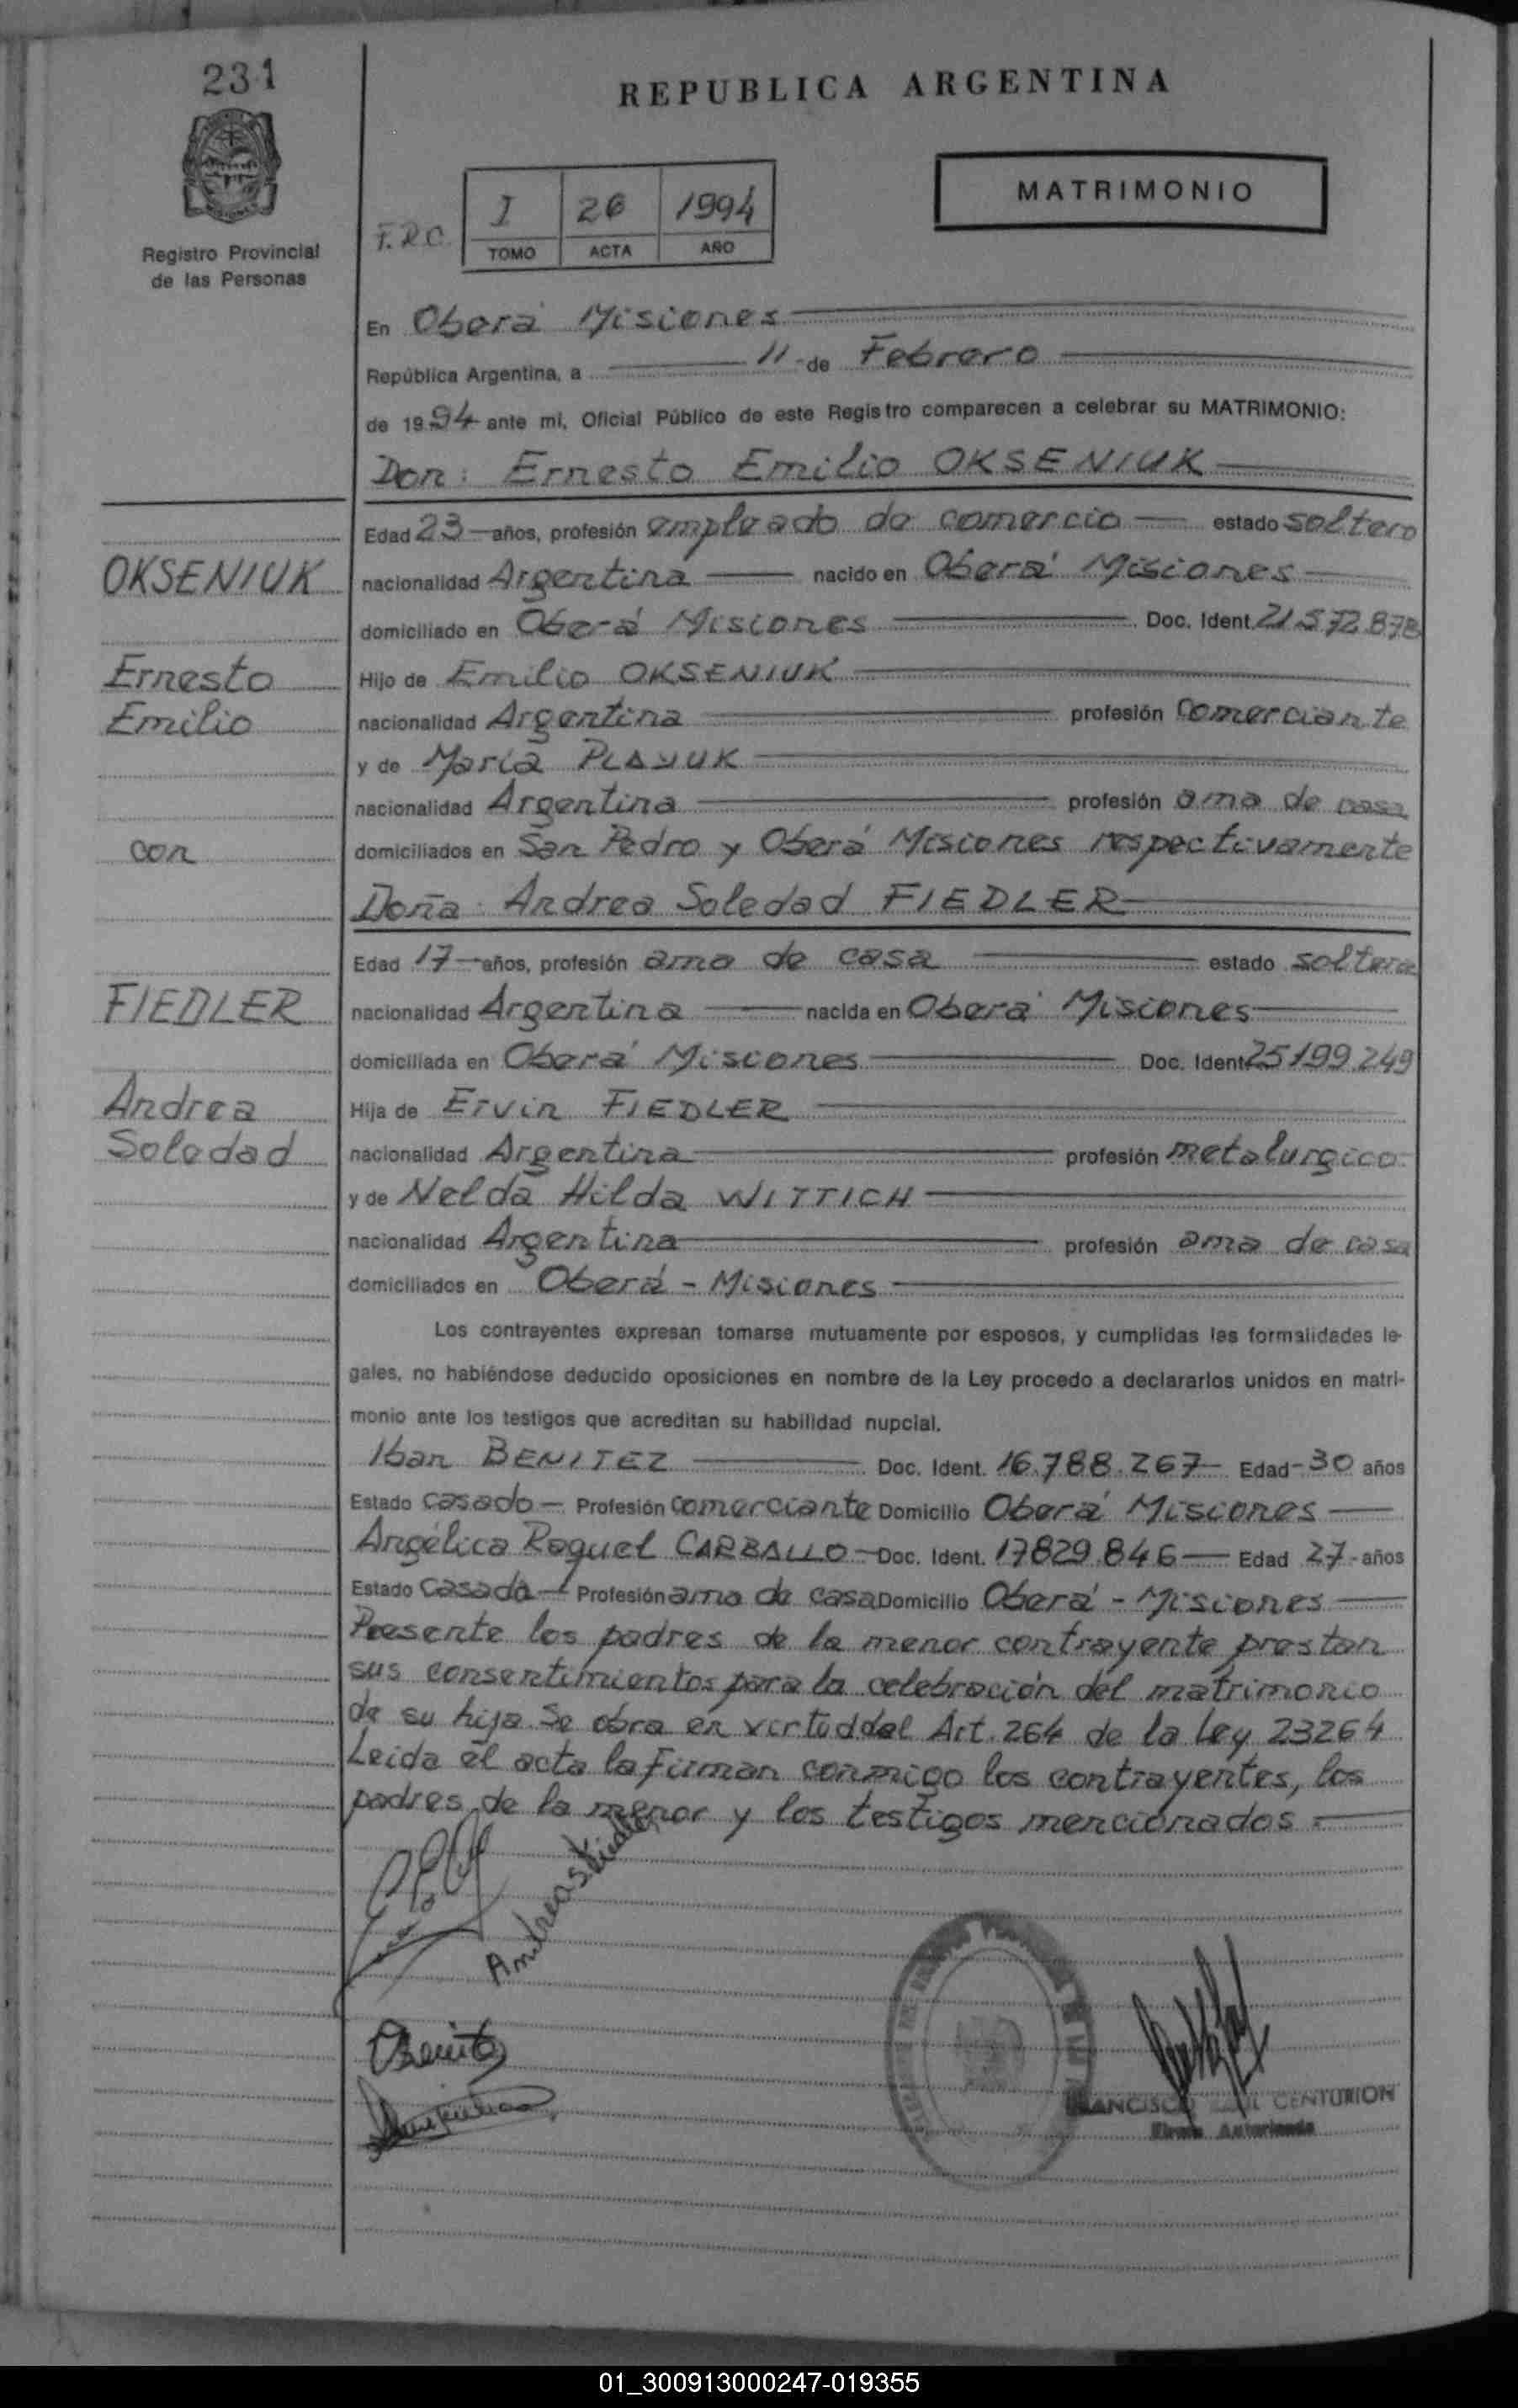 231
REPUBLICA ARGENTINA
MATRIMONIO
Registro Provincial
de las Personas
F.R.C.
I 26 1994
TOMO ACTA AÑO
En Oberá Misiones
República Argentina, a 11 de Febrero
de 1994 ante mi, Oficial Público de este Registro comparecen a celebrar su MATRIMONIO:
Don: Ernesto Emilio OKSENIUK
Edad 23 años, profesión empleado de comercio estado soltero
OKSENIUK
nacionalidad Argentina nacido en Oberá Misiones
domiciliado en Oberá Misiones Doc. Ident. 21.572.878
Ernesto
Hijo de Emilio OKSENIUK
Emilio
nacionalidad Argentina profesión comerciante
y de María PLAYUK
nacionalidad Argentina profesión ama de casa
con
domiciliados en San Pedro y Oberá Misiones respectivamente
Doña: Andrea Soledad FIEDLER
Edad 17 años, profesión ama de casa estado soltera
FIEDLER
nacionalidad Argentina nacida en Oberá Misiones
domiciliada en Oberá Misiones Doc. Ident. 25199.249
Andrea
Hija de Ervin FIEDLER
Soledad
nacionalidad Argentina profesión metalurgico
y de Nelda Hilda WITTICH
nacionalidad Argentina profesión ama de casa
domiciliados en Oberá - Misiones
Los contrayentes expresan tomarse mutuamente por esposos, y cumplidas las formalidades le-
gales, no habiéndose deducido oposiciones en nombre de la Ley procedo a declararlos unidos en matri-
monio ante los testigos que acreditan su habilidad nupcial.
Iban BENITEZ Doc. Ident. 16.788.267 Edad 30 años
Estado casado Profesión comerciante Domicilio Oberá Misiones
Angélica Raquel CARBALLO Doc. Ident. 17829.846 Edad 27 años
Estado casada Profesión ama de casa Domicilio Oberá - Misiones
Presente los padres de la menor contrayente prestan
sus consentimientos para la celebración del matrimonio
de su hija. Se obra en virtud del Art. 264 de la Ley 23264
Leida el acta la firman conmigo los contrayentes, los
padres de la menor y los testigos mencionados.
Andrea S Fiedler
Benitez
FRANCISCO RAUL CENTURION
Firma Autorizada
01_300913000247-019355